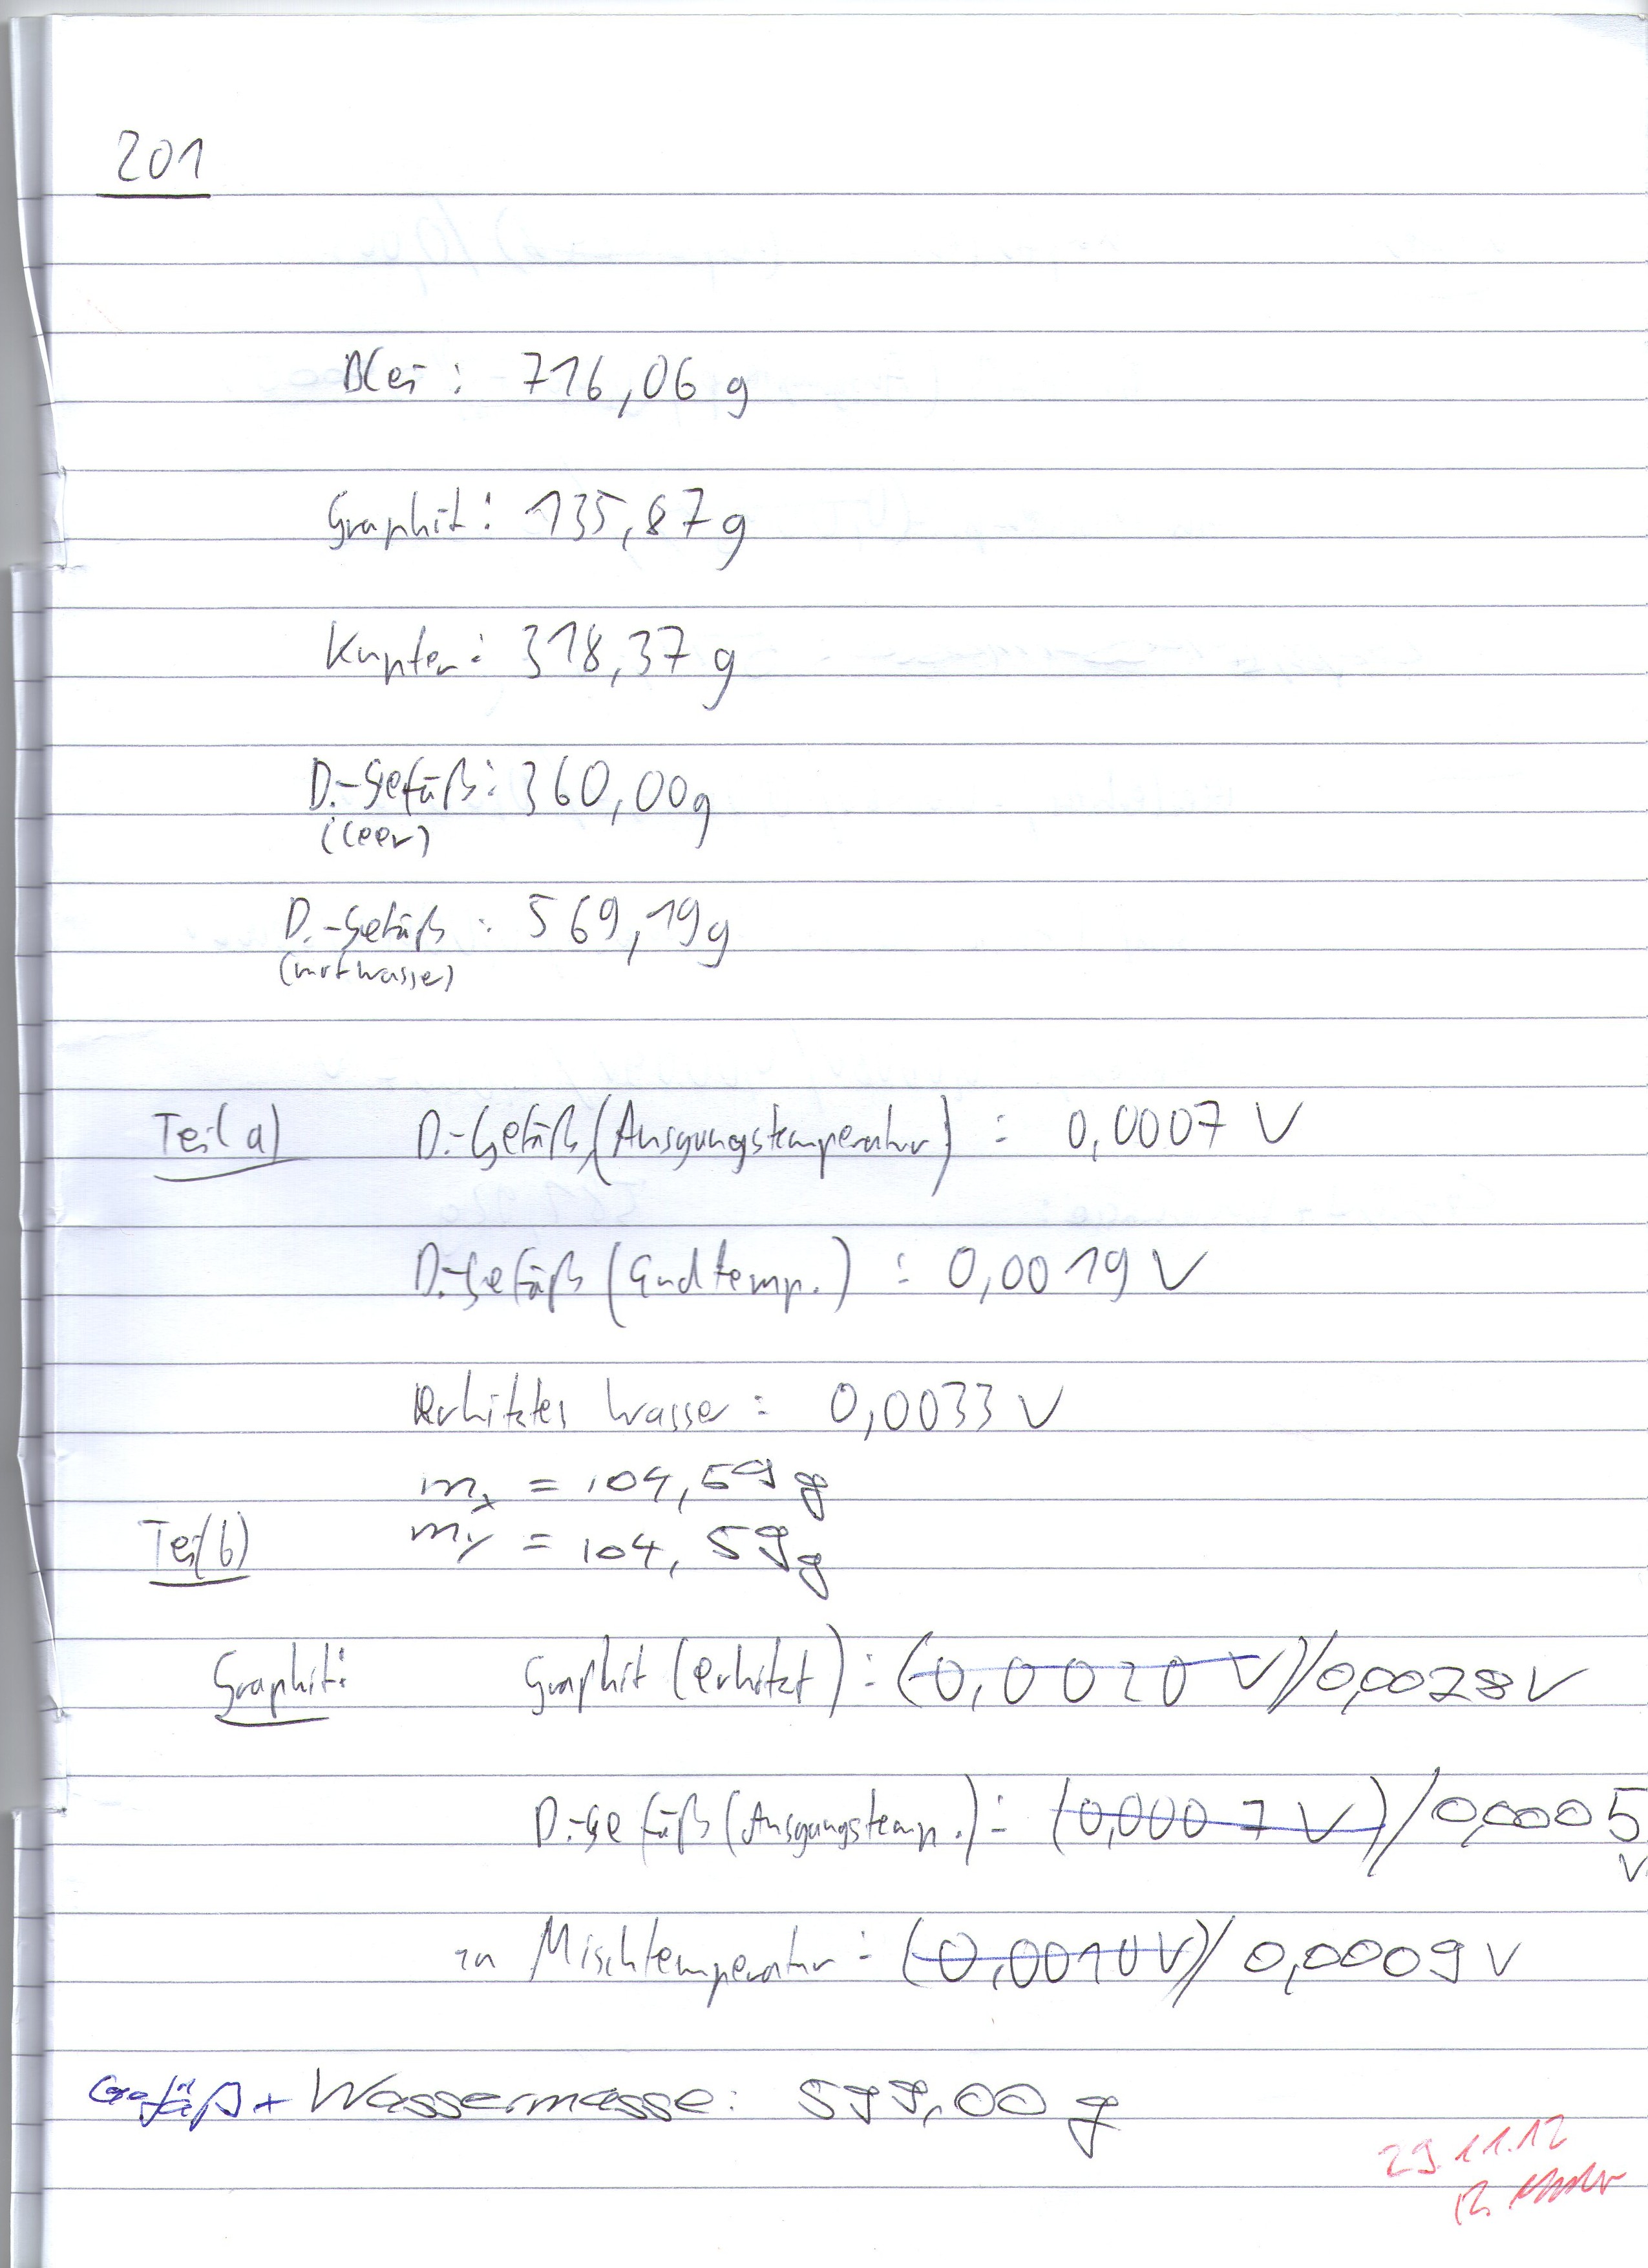 201
Blei : 716,06 g
Graphit : 135,87 g
Kupfer : 318,37 g
D.-Gefäß : 360,00 g
(leer)
D.-Gefäß : 569,19 g
(mit Wasser)
Teil a) D.-Gefäß (Ausgangstemperatur) : 0,0007 V
D.-Gefäß (Endtemp.) : 0,0019 V
Erhitztes Wasser : 0,0033 V
mx = 104,59 g
my = 104,59 g
Teil b)
Graphit: Graphit (erhitzt) : (0,0020 V) / 0,0028 V
D.-Gefäß (Ausgangstemp.) : (0,0007 V) / 0,0005 V
Mischtemperatur : (0,0010 V) / 0,0009 V
Gefäß + Wassermasse : 599,00 g
29.11.12